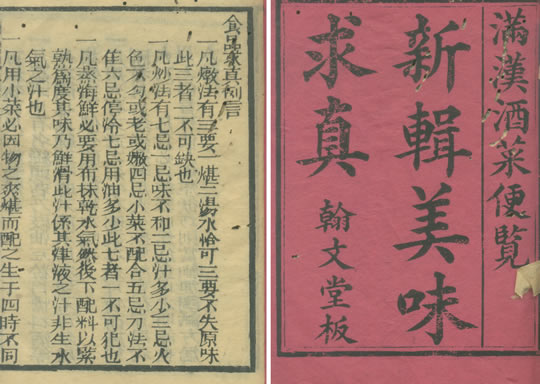 滿漢酒菜便覽
新輯美味
求真
翰文堂板
食品求真例言
一凡燉法有三要一堪二湯水恰可三要不失原味
此三者一不可缺也
一凡炒法有七忌一忌味不和二忌汁多少三忌火
色不勻或老或嫩四忌小菜不配合五忌刀法不
佳六忌停冷七忌用油多少此七者一不可犯也
一凡蒸海鮮必要用布抹乾水氣然後下配料以緊
熟爲度其味乃鮮滑此汁係其津液之汁非生水
氣之汁也
一凡用小菜必因物之爽堪而配之生于四時不同